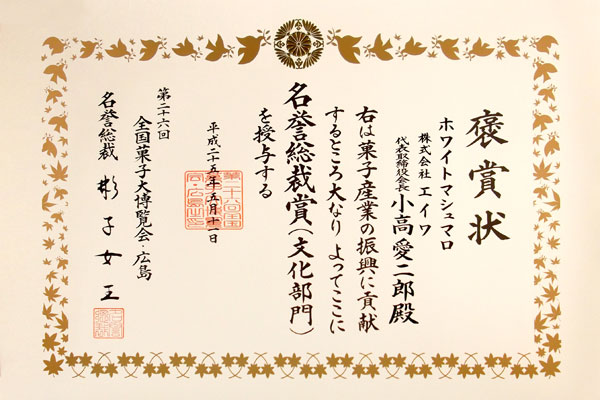 褒賞状
ホワイトマシュマロ
株式会社 エイワ
代表取締役会長 小高愛二郎殿
右は菓子産業の振興に貢献
するところ大なり よってここに
名誉総裁賞(文化部門)
を授与する
平成二十五年五月十一日
第二十六回
全国菓子大博覧会・広島
名誉総裁 彬子女王